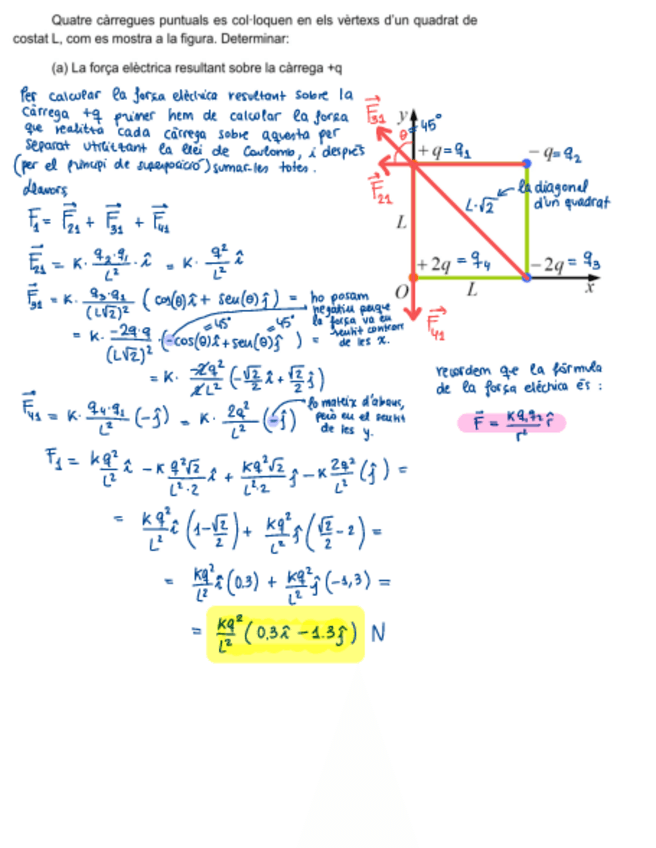 Quatre càrregues puntuals es col·loquen en els vèrtexs d'un quadrat de
costat L, com es mostra a la figura. Determinar:
(a) La força elèctrica resultant sobre la càrrega +q
Per calcular la força elèctrica resultant sobre la
càrrega +q primer hem de calcular la força
que realitza cada càrrega sobre aquesta per
separat utilitzant la llei de Coulomb, i després
(per el principi de superposició) sumar-les totes.
Llavors
F₁ = F⃗₂₁ + F⃗₃₁ + F⃗₄₁
F⃗₂₁ = K · q₂·q₁/L² · î = K · q²/L² î
F⃗₃₁ = K · q₃·q₁/(L√2)² (cos(θ)î + sen(θ)ĵ) =
= K · -2q·q/(L√2)² · (-cos(θ)î + sen(θ)ĵ) =
=45° =45°
ho posam
negatiu perque
la força va en
sentit contrari
de les x.
= K · -2q²/2L² (-√2/2 î + √2/2 ĵ)
F⃗₄₁ = K · q₄·q₁/L² (-ĵ) = K · 2q²/L² (-ĵ)
lo mateix d'abans,
però en el sentit
de les y.
F₁ = kq²/L² î - K q²√2/L²·2 î + kq²√2/L²·2 ĵ - K 2q²/L² (ĵ) =
= kq²/L² î (1-√2/2) + kq²/L² ĵ (√2/2 - 2) =
= kq²/L² î (0.3) + kq²/L² ĵ (-1,3) =
= kq²/L² (0,3î - 1.3ĵ) N
F⃗₃₁
y
θ = 45°
+q = q₁
-q = q₂
F⃗₂₁
L·√2
la diagonal
d'un quadrat
L
+2q = q₄
-2q = q₃
O
L
x
F⃗₄₁
recordem que la fórmula
de la força elèctrica és:
F⃗ = K q₁q₂/r² r̂